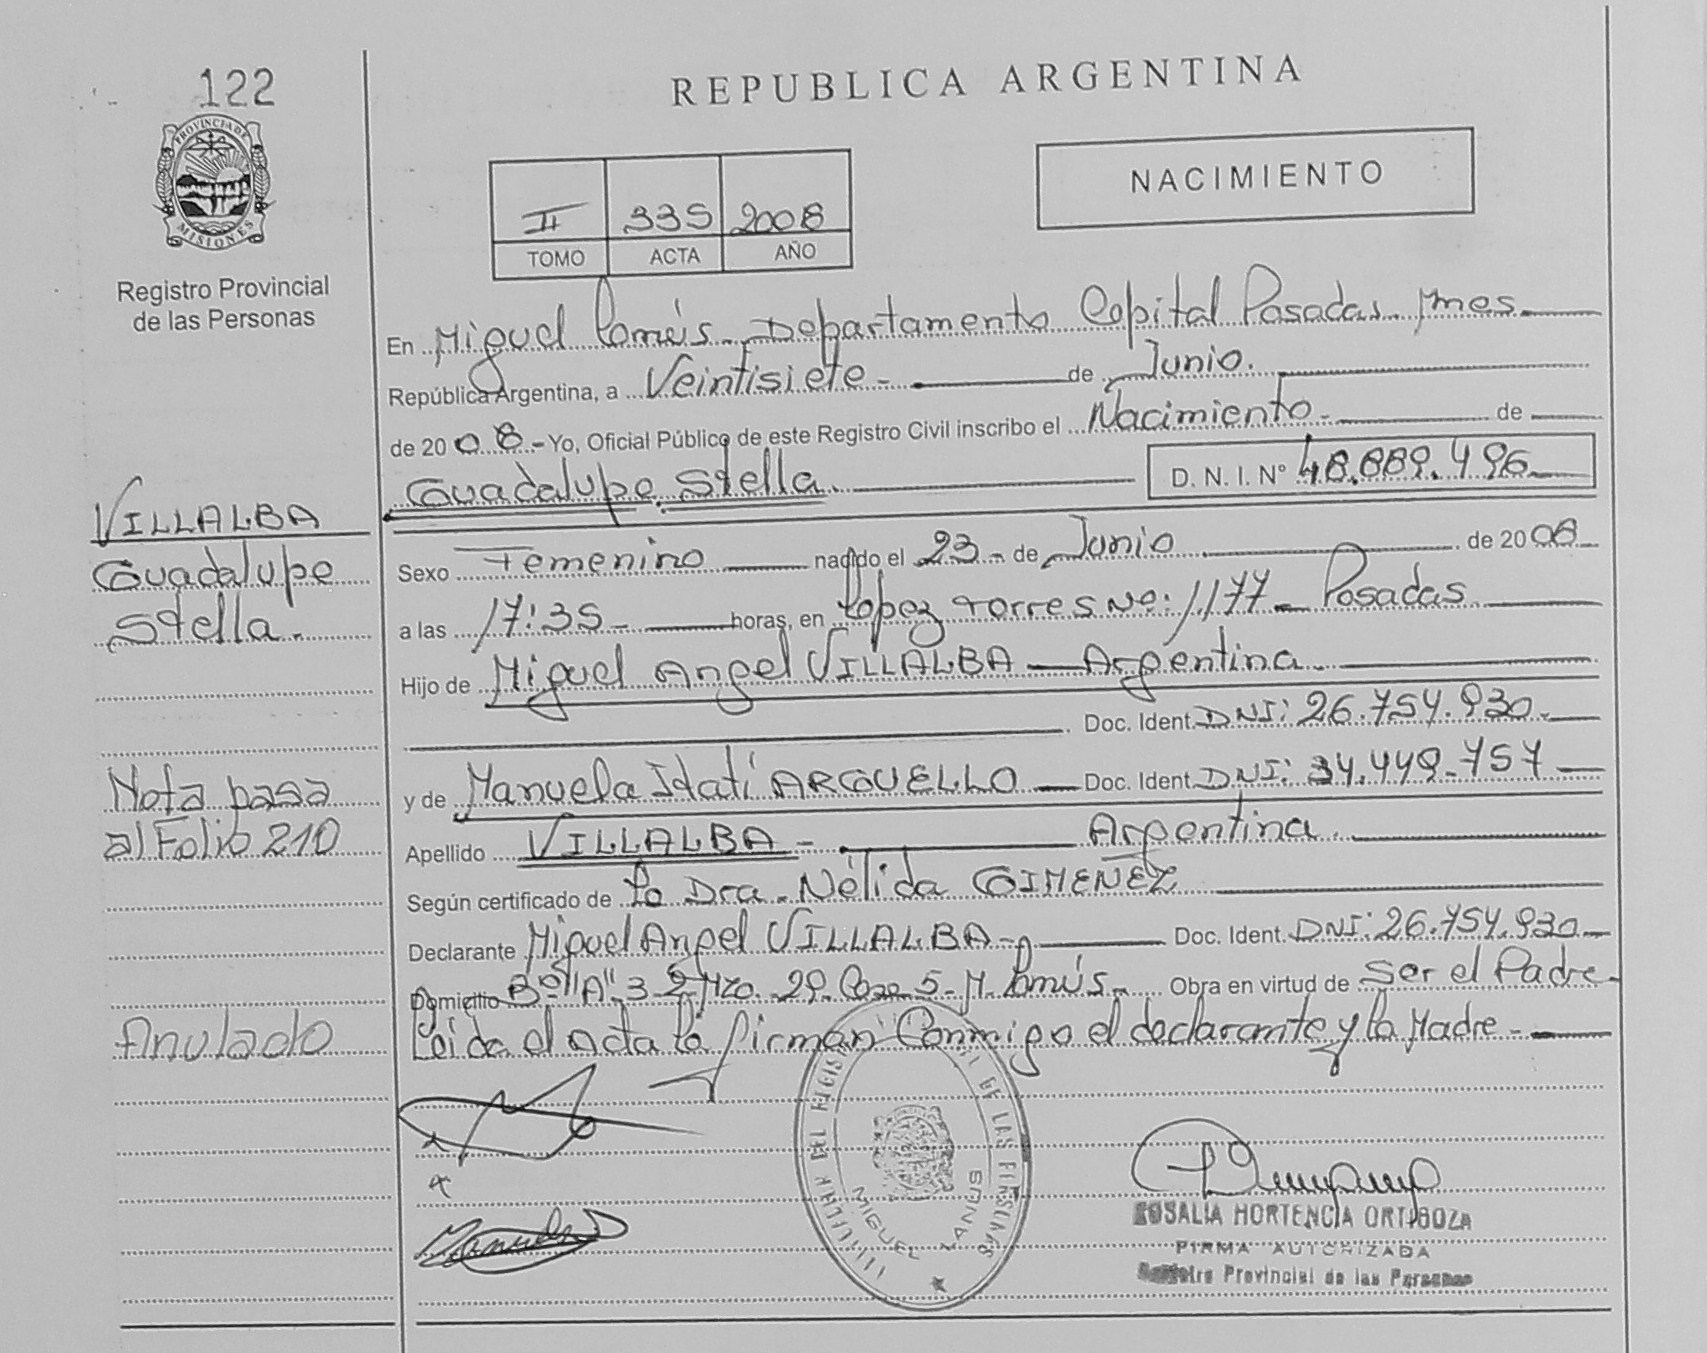 122
REPUBLICA ARGENTINA
PROVINCIA DE
MISIONES
Registro Provincial
de las Personas
II 335 2008
TOMO ACTA AÑO
NACIMIENTO
En Miguel Lanús - Departamento Capital Posadas Mnes
República Argentina, a Veintisiete - de Junio.
de 20 08 - Yo, Oficial Público de este Registro Civil inscribo el Nacimiento - de
Guadalupe Stella. D. N. I. Nº 48.889.496
VILLALBA
Guadalupe
Stella.-
Sexo Femenino nacido el 23 - de Junio de 2008
a las 17:35 - horas, en Lopez Torres No: 1177 - Posadas
Hijo de Miguel Angel VILLALBA - Argentina.
Doc. Ident. DNI: 26.754.930.-
y de Manuela Itatí ARGUELLO - Doc. Ident. DNI: 34.449.757
Apellido VILLALBA - Argentina.
Nota pasa
al Folio 210
Según certificado de La Dra. Nélida GIMENEZ
Declarante Miguel Angel VILLALBA - Doc. Ident. DNI: 26.754.930
Domicilio Bº "A" 3-2 Mzo. 29. Casa 5 - M. Lanús - Obra en virtud de Ser el Padre -
Leida el acta la firman Conmigo el declarante y la Madre -
Anulado
DEL REGIS
DE LAS PERSONAS
MIGUEL LANUS
ROSALIA HORTENCIA
FIRMA AUTORIZADA
Registro Provincial de las Personas